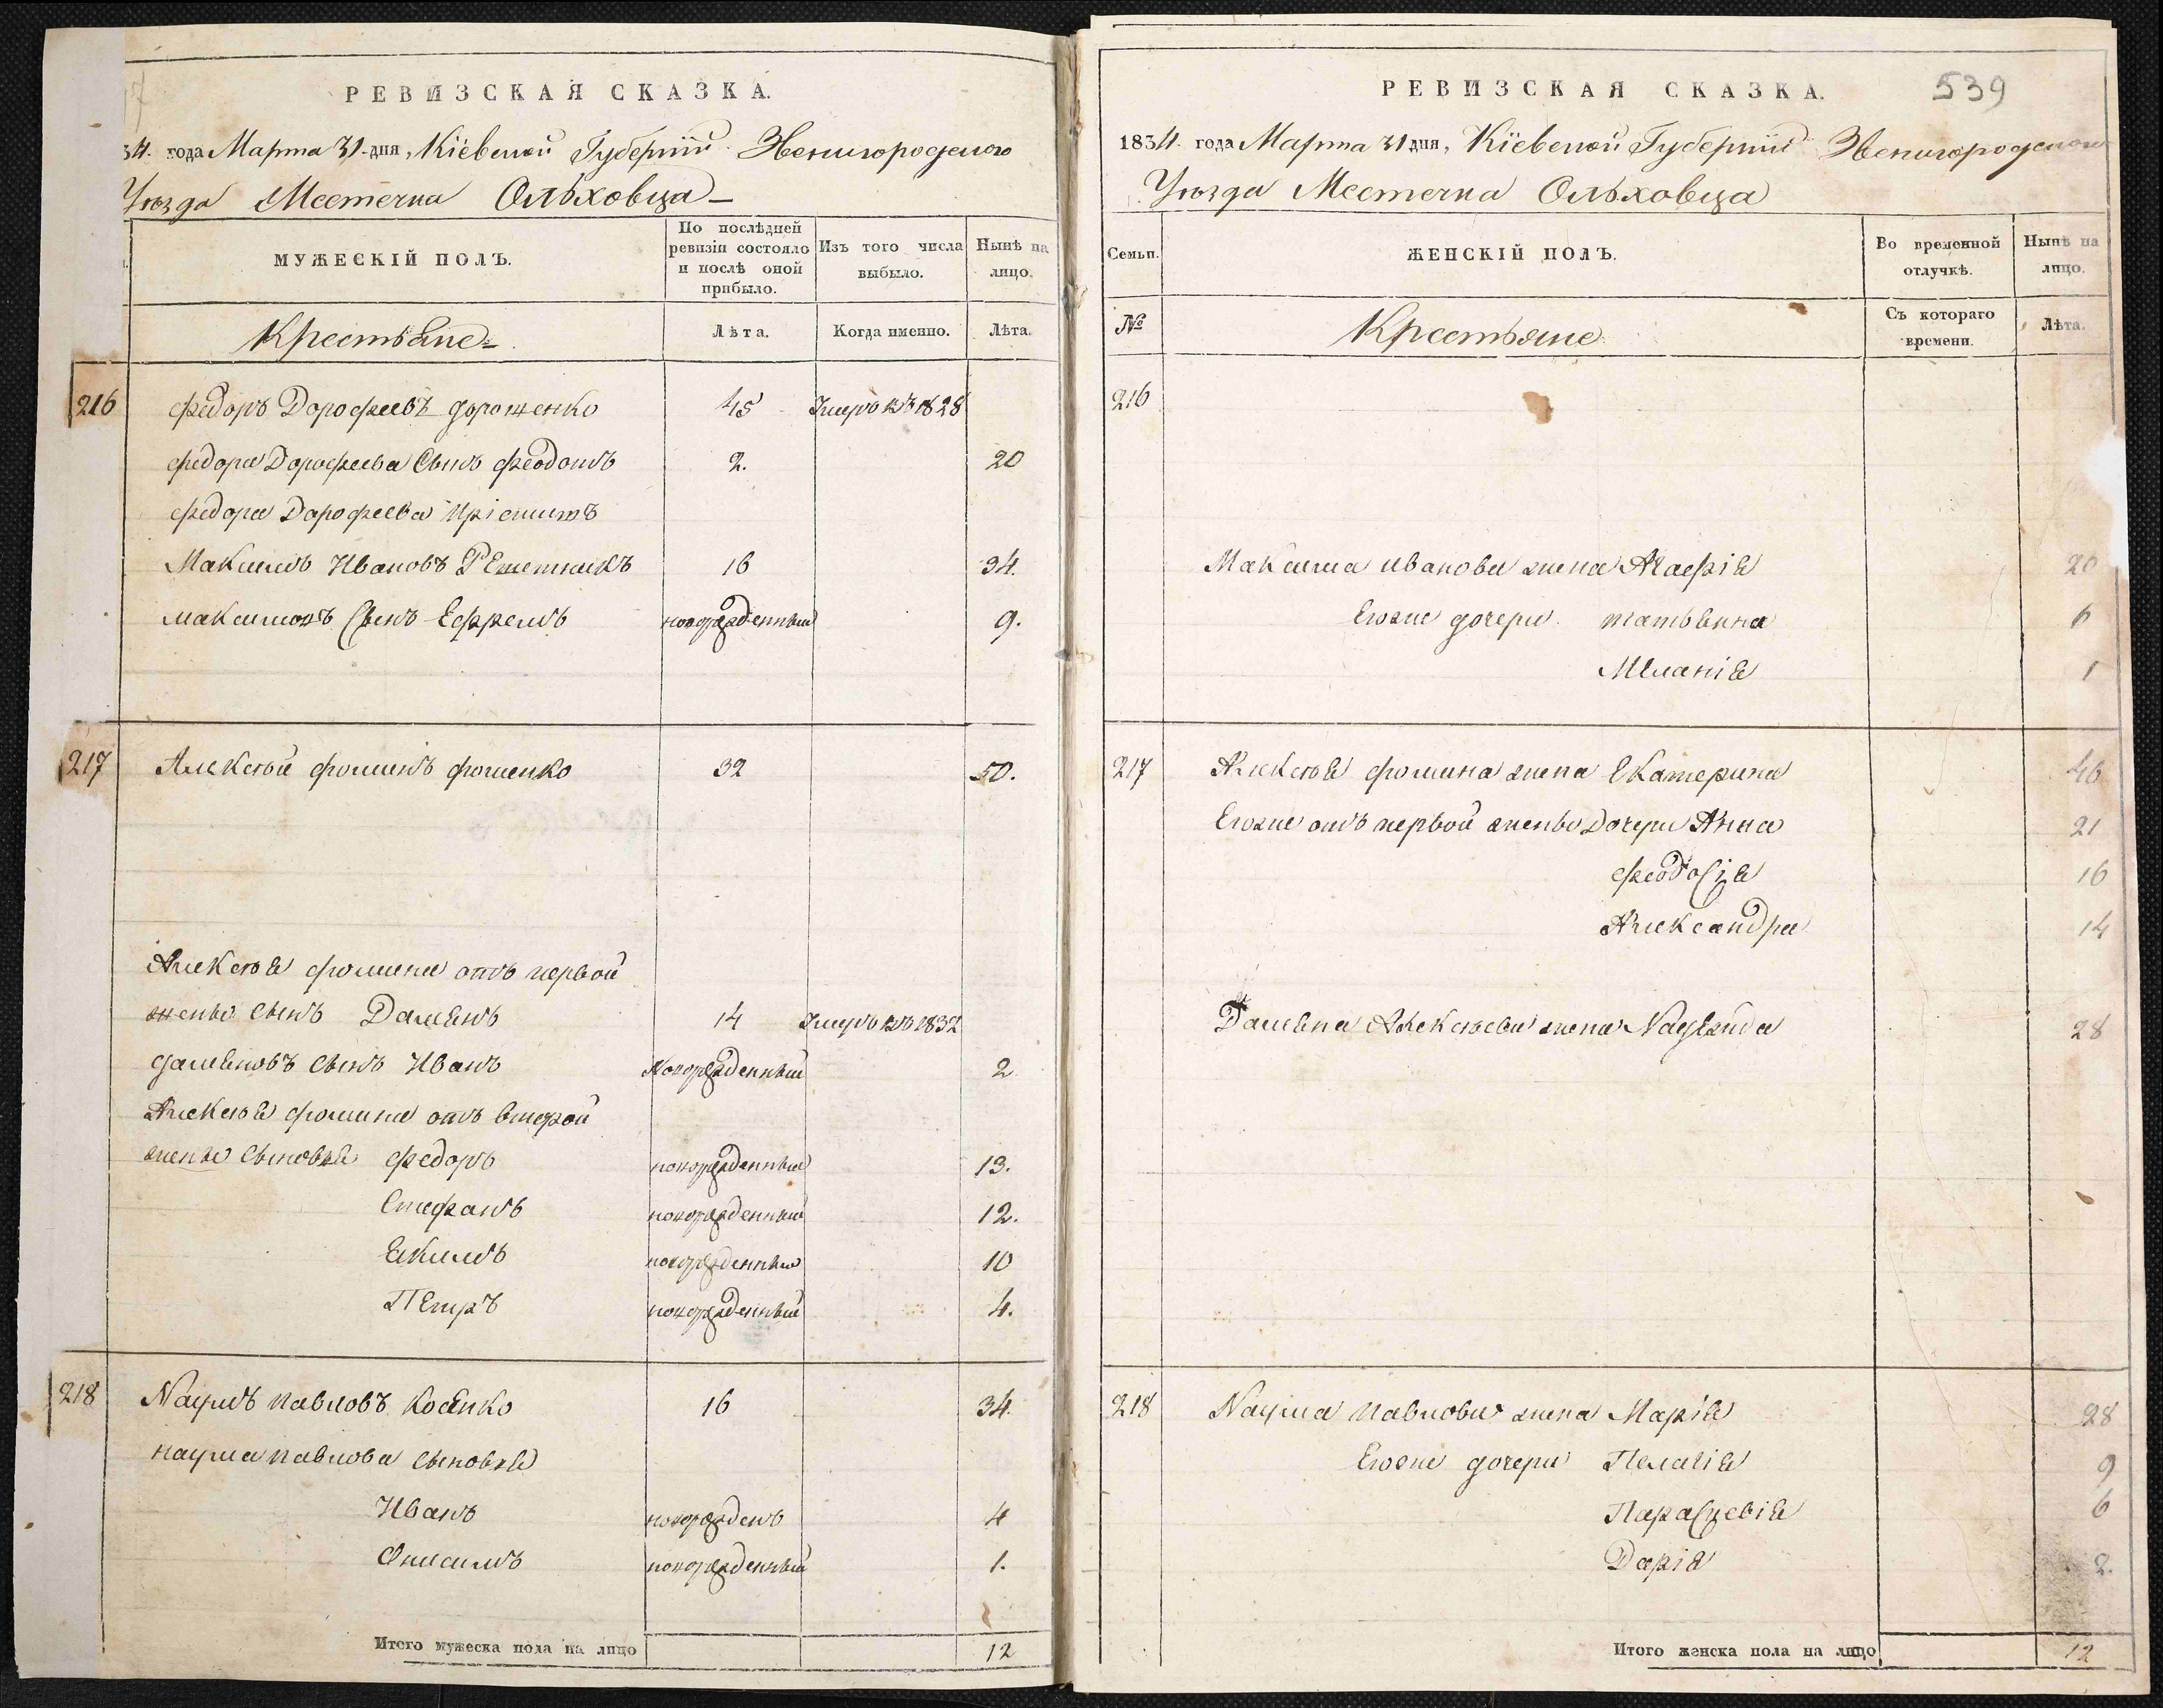 РЕВИЗСКАЯ СКАЗКА.
34. года Марта 31 дня, Кіевской Губерніи Звенигородского
Уѣзда Местечка Ольховца
МУЖЕСКІЙ ПОЛЪ.
По послѣдней ревизіи состояло и послѣ оной прибыло.
Изъ того числа выбыло.
Нынѣ на лицо.
Крестьяне
Лѣта.
Когда именно.
Лѣта.
216 Федоръ Дорофеевъ Дороженко 45 Умеръ въ 1828
Федора Дорофеева Сынъ Феодотъ 2. 20
Федора Дорофеева Пріемышъ
Максимъ Ивановъ Решетникъ 16 34.
Максимовъ Сынъ Ефремъ новорожденный 9.
217 Алексѣй Фоминъ Фоменко 32 50.
Алексѣя Фомина отъ первой
жены Сынъ Дамянъ 14 Умеръ въ 1832
Дамяновъ Сынъ Иванъ Новорожденный 2
Алексѣя Фомина отъ второй
жены Сыновья Федоръ новорожденный 13.
Стефанъ новорожденный 12.
Якимъ новорожденный 10
Петръ новорожденный 4.
218 Наумъ Павловъ Косянко 16 34
Наума Павлова Сыновья
Иванъ новорожденъ 4
Онисимъ новорожденный 1.
Итого мужеска пола на лицо 12
539
РЕВИЗСКАЯ СКАЗКА.
1834. года Марта 31 дня, Кіевской Губерніи Звенигородского
Уѣзда Местечка Ольховца
Семьи.
ЖЕНСКІЙ ПОЛЪ.
Во временной отлучкѣ.
Нынѣ на лицо.
№
Крестьяне
Съ котораго времени.
Лѣта.
216
Максима Иванова жена Агафія 20
Егоже дочери Татьянна 6
Меланія 1
217 Алексѣя Фомина жена Екатерина 46
Егоже отъ первой жены Дочери Анна 21
Феодосія 16
Александра 14
Дамяна Алексѣева жена Надежда 28
218 Наума Павлова жена Марія 28
Егоже дочери Пелагія 9
Парасцевія 6
Дарія 2.
Итого женска пола на лицо 12